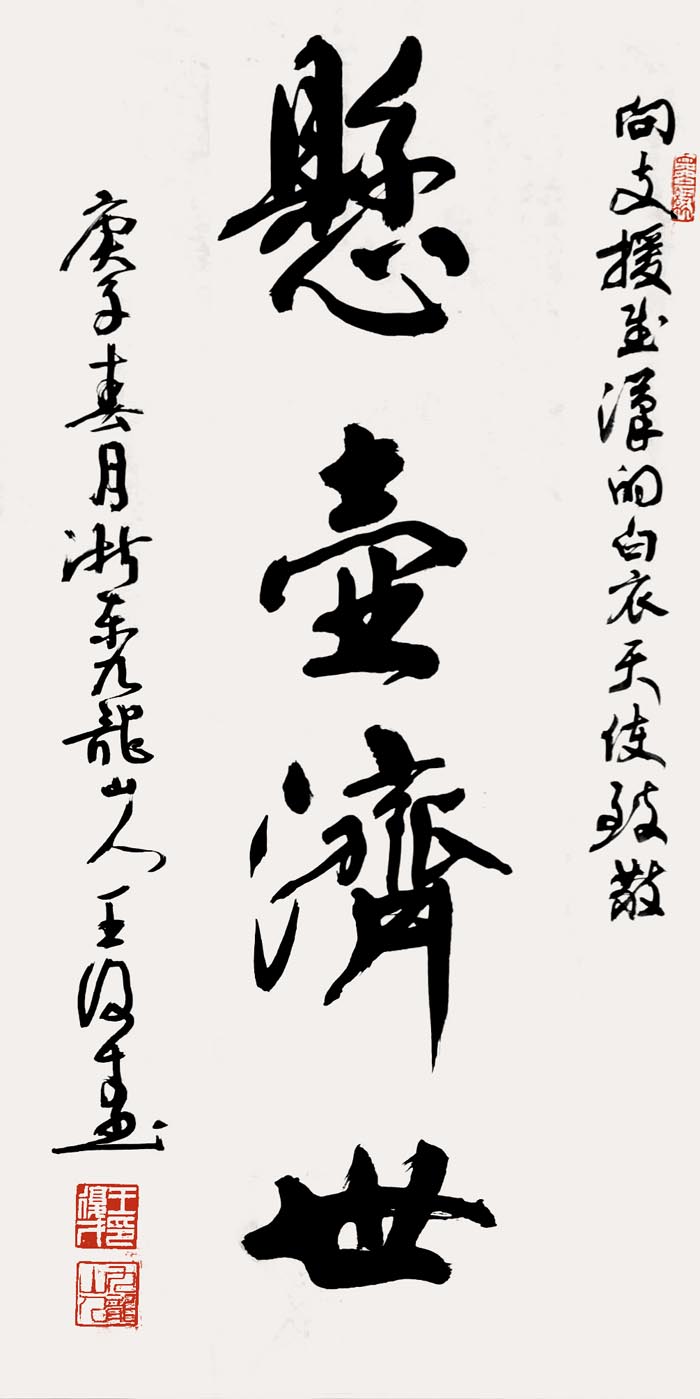 向支援武漢的白衣天使致敬
懸壶濟世
庚子春月浙東九龍山人王